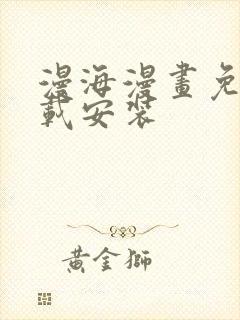 漫海漫畫免
載安裝
黃金獅